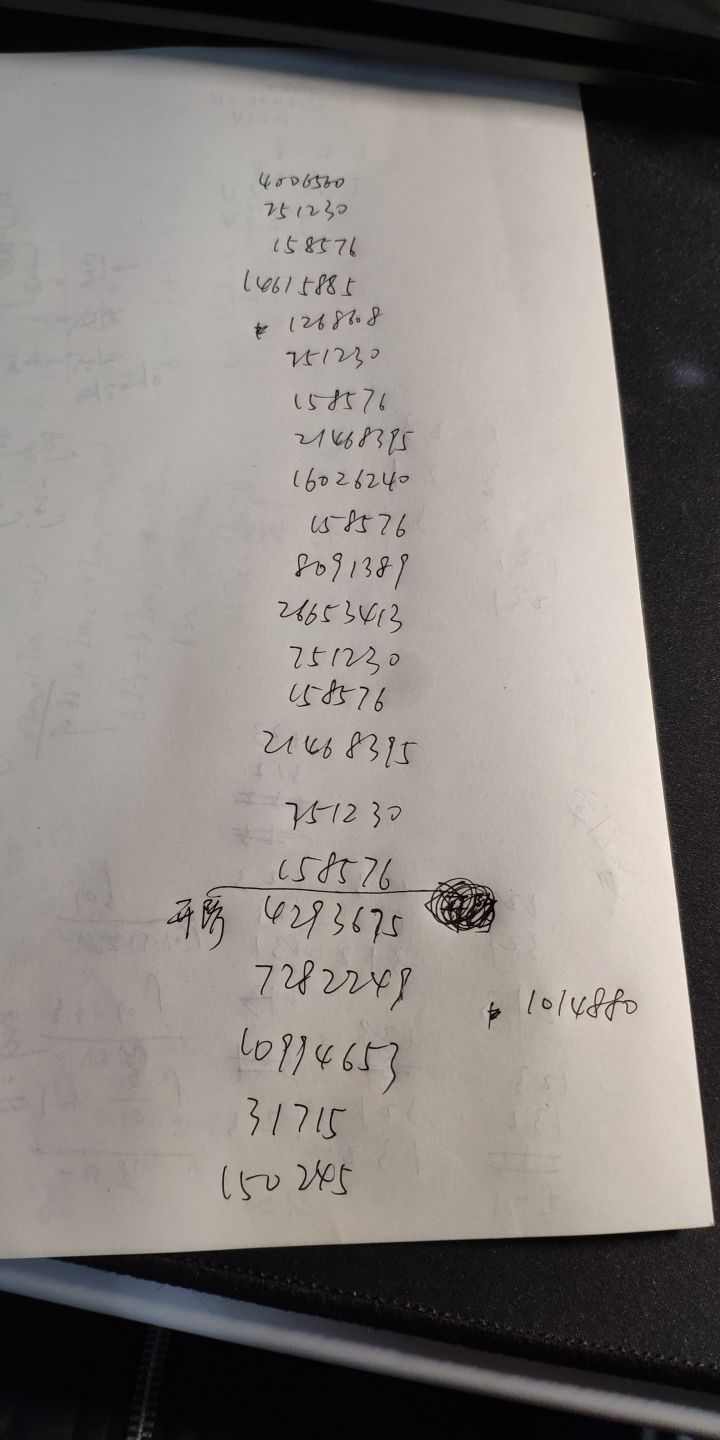 4006560
751230
158576
14615885
1268608
751230
158576
21468395
16026240
158576
8091389
26653413
751230
158576
21468395
751230
158576
开阶 4293675
7282249
1014880
10994653
31715
150245